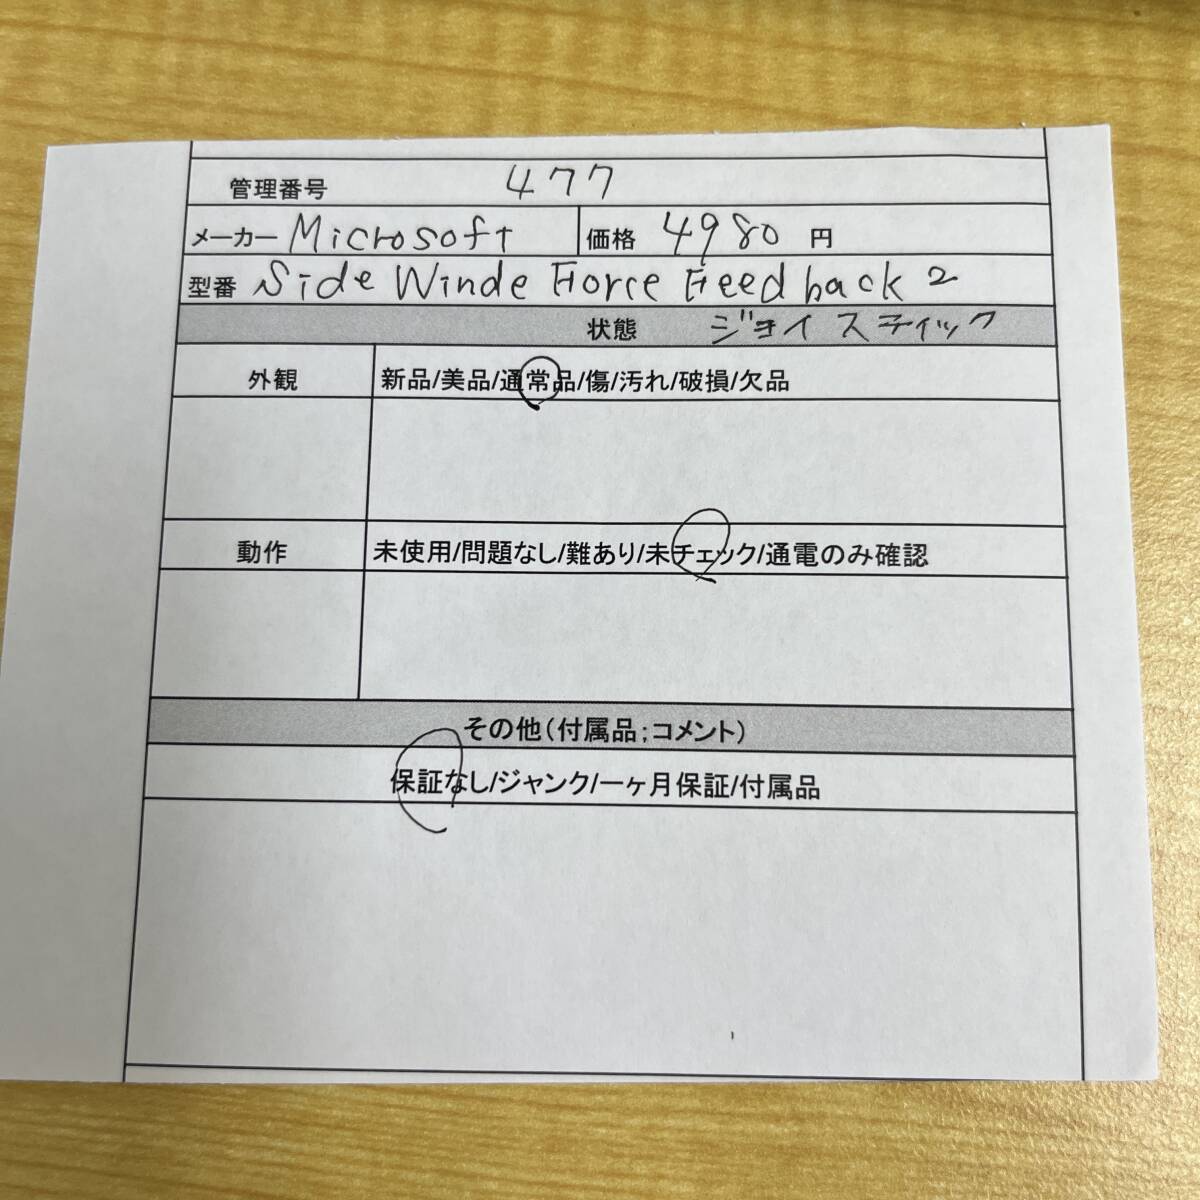 管理番号 477
メーカー Microsoft 価格 4980 円
型番 Side Winde Force Feedback 2
状態 ジョイスティック
外観 新品/美品/通常品/傷/汚れ/破損/欠品
動作 未使用/問題なし/難あり/未チェック/通電のみ確認
その他(付属品;コメント)
保証なし/ジャンク/一ヶ月保証/付属品